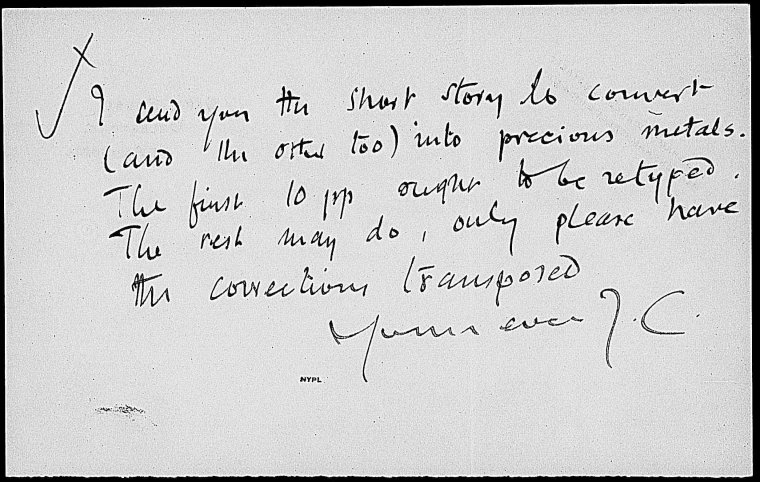 I send you the short story to convert
(and the other too) into precious metals.
The first 10 pp ought to be retyped.
The rest may do, only please have
the corrections transposed
Yours ever J. C.
NYPL